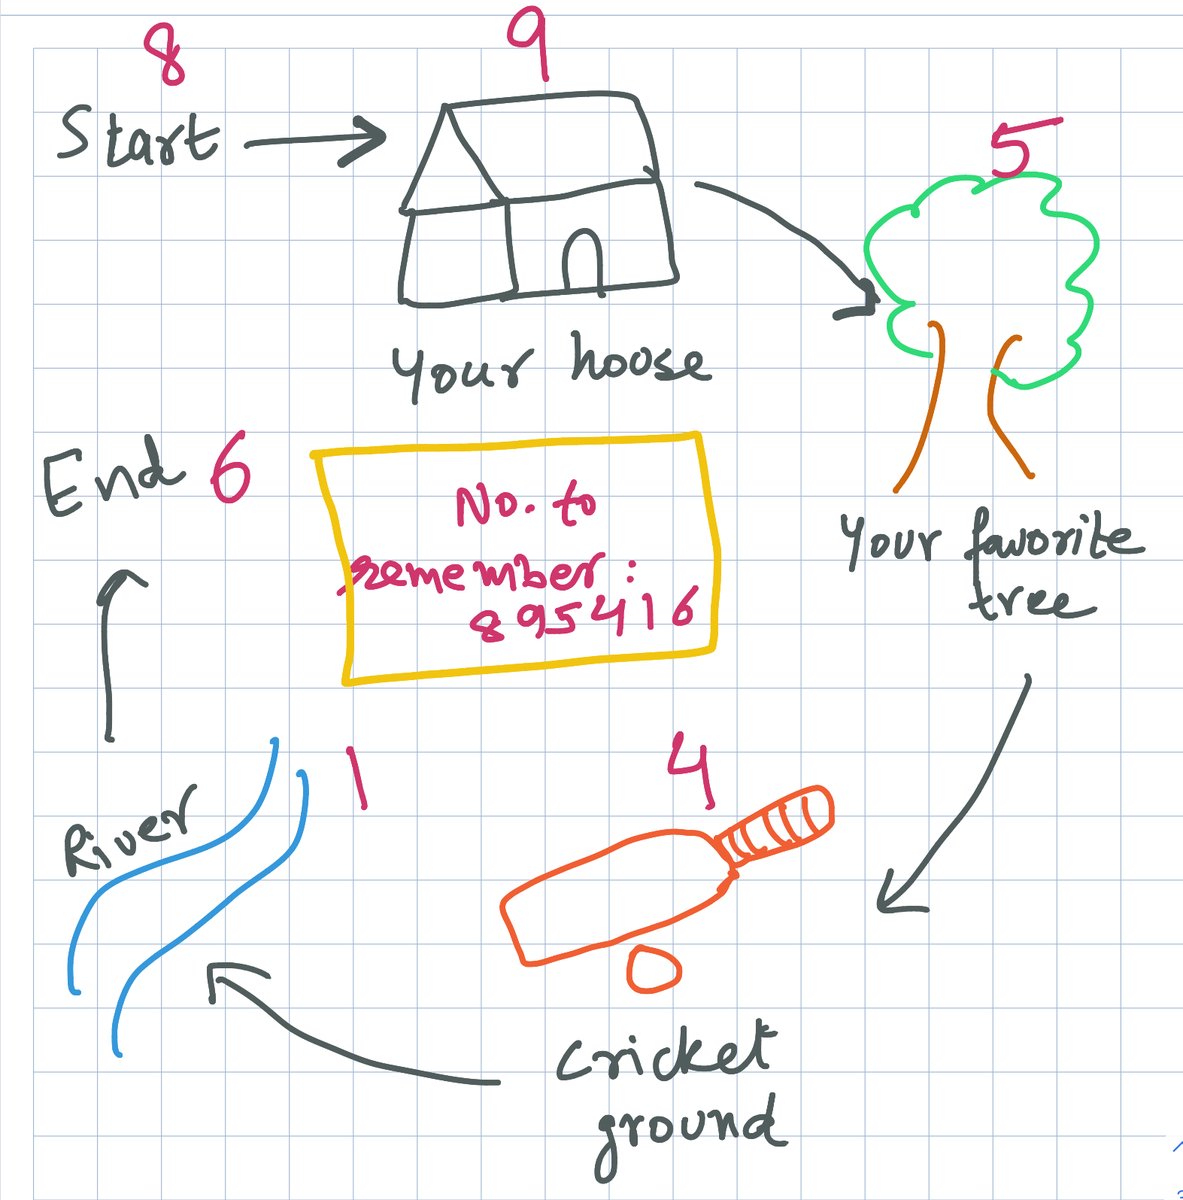 8
Start
9
Your house
5
Your favorite
tree
End 6
No. to
remember:
895416
River
1
4
Cricket
ground